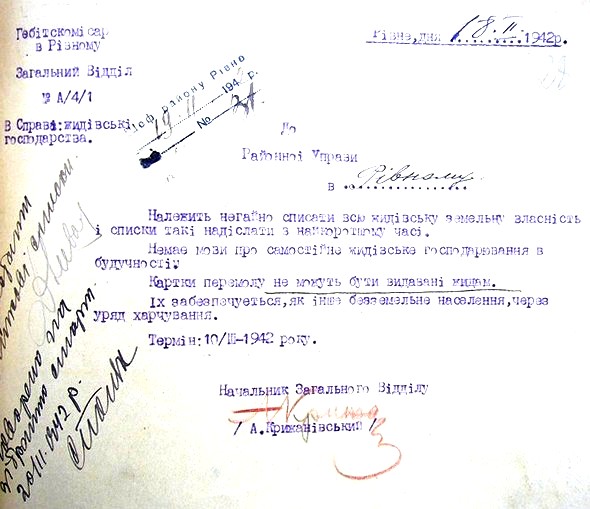 Гебітскомісар
в Рівному
Рівне, дня 18.II. 1942р.
Загальний Відділ
№ А/4/1
Шеф району Рівно
19 II 194 р.
№ 
В Справі: жидівські
господарства.
До
Районної Управи
в Рівному
Належить негайно списати всю жидівську земельну власність
і списки такі надіслати в найкоротшому часі.
Немає мови про самостійне жидівське господарювання в
будучності.
Картки перемолу не можуть бути видавані жидам.
Їх забезпечується, як інше безземельне населення, через
уряд харчування.
Термін: 10/III-1942 року.
Начальник Загального Відділу
/ А. Крижанівський /
списки
на
20/II. 1942 р.